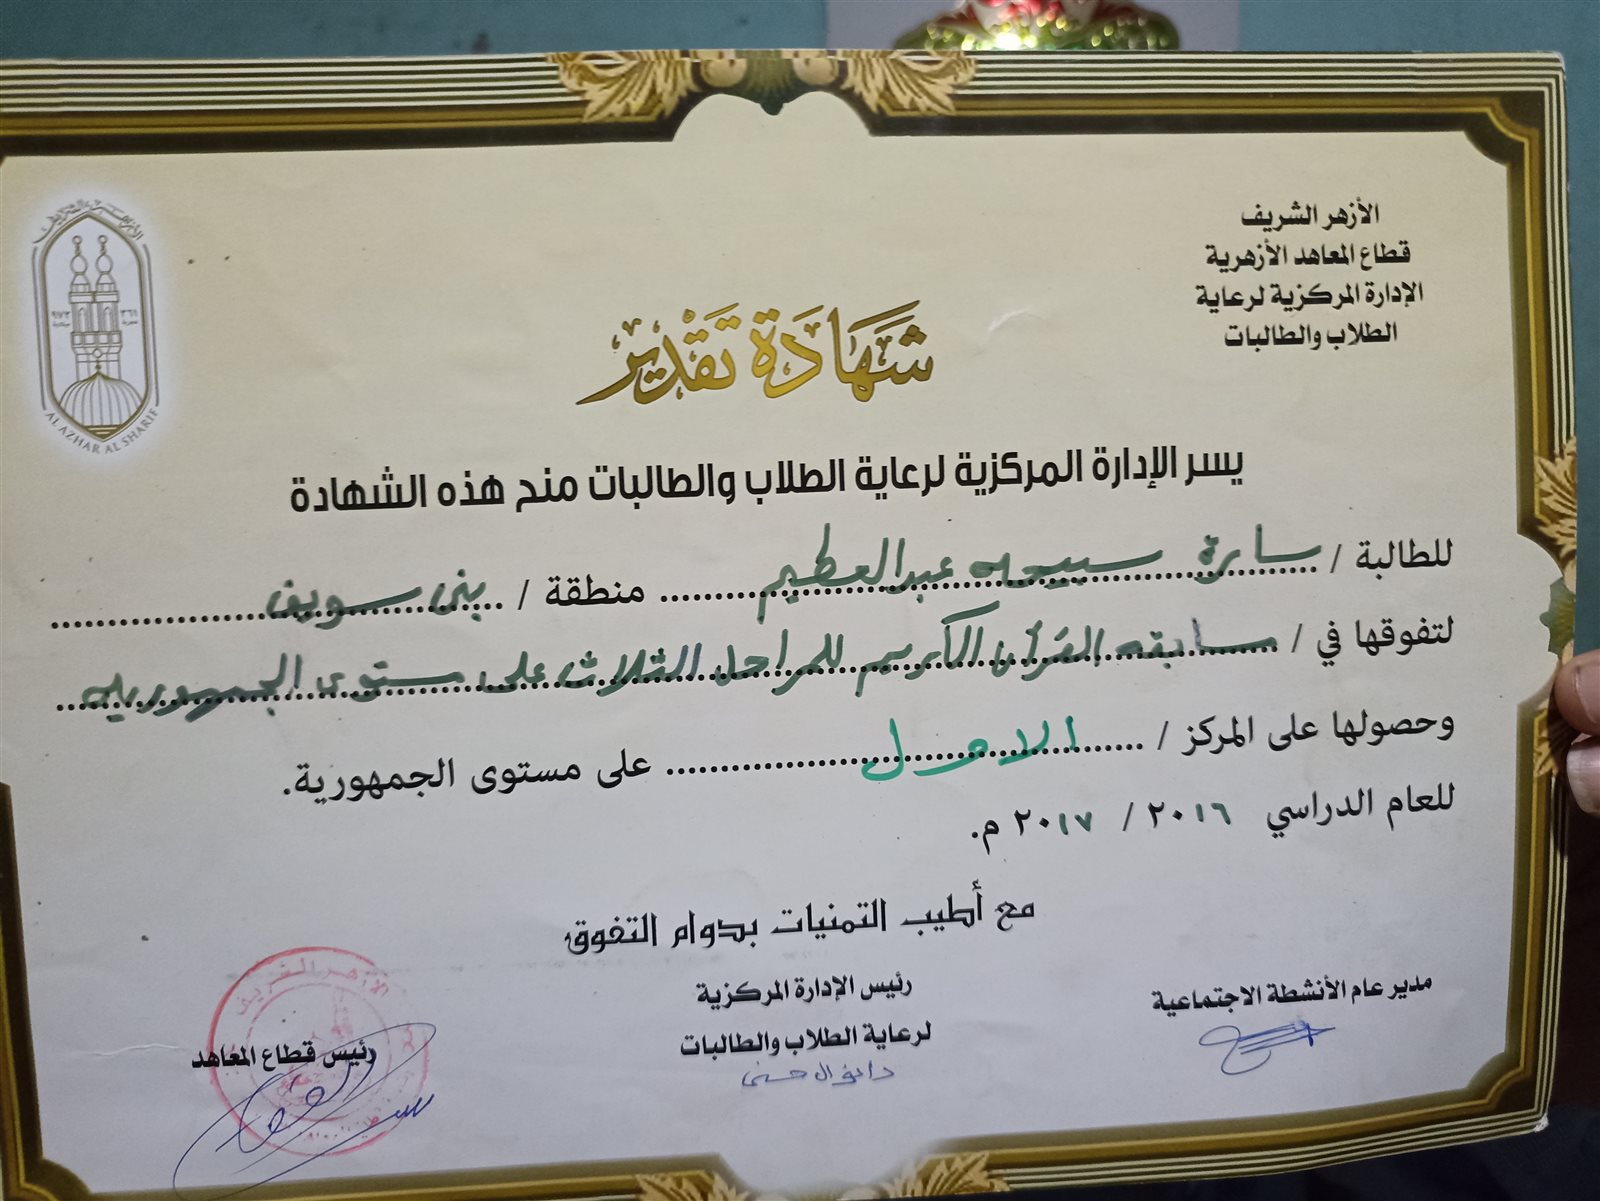 الأزهر الشريف
قطاع المعاهد الأزهرية
الإدارة المركزية لرعاية
الطلاب والطالبات
الأزهر الشريف
٣٦١ هجرية
٩٧٢ ميلادية
AL AZHAR AL SHARIF
شَهَادَة تَقْدِير
يسر الإدارة المركزية لرعاية الطلاب والطالبات منح هذه الشهادة
للطالبة / سارة سبيحه عبدالعظيم منطقة / بنى سويف
لتفوقها في / مسابقه القرآن الكريم للمراحل الثلاث على مستوى الجمهوريه
وحصولها على المركز / الاول على مستوى الجمهورية.
للعام الدراسي ٢٠١٦ / ٢٠١٧ م.
مع أطيب التمنيات بدوام التفوق
مدير عام الأنشطة الاجتماعية
رئيس الإدارة المركزية
لرعاية الطلاب والطالبات
رئيس قطاع المعاهد
الأزهر الشريف